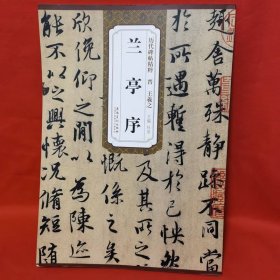 趣舍萬殊靜躁不同當
所遇蹔得於己怏然
历代碑帖精粹 晋 王羲之
兰亭序
及其所之
慨係之矣
欣俛仰之間以為陳迹
能不以之興懷况脩短隨